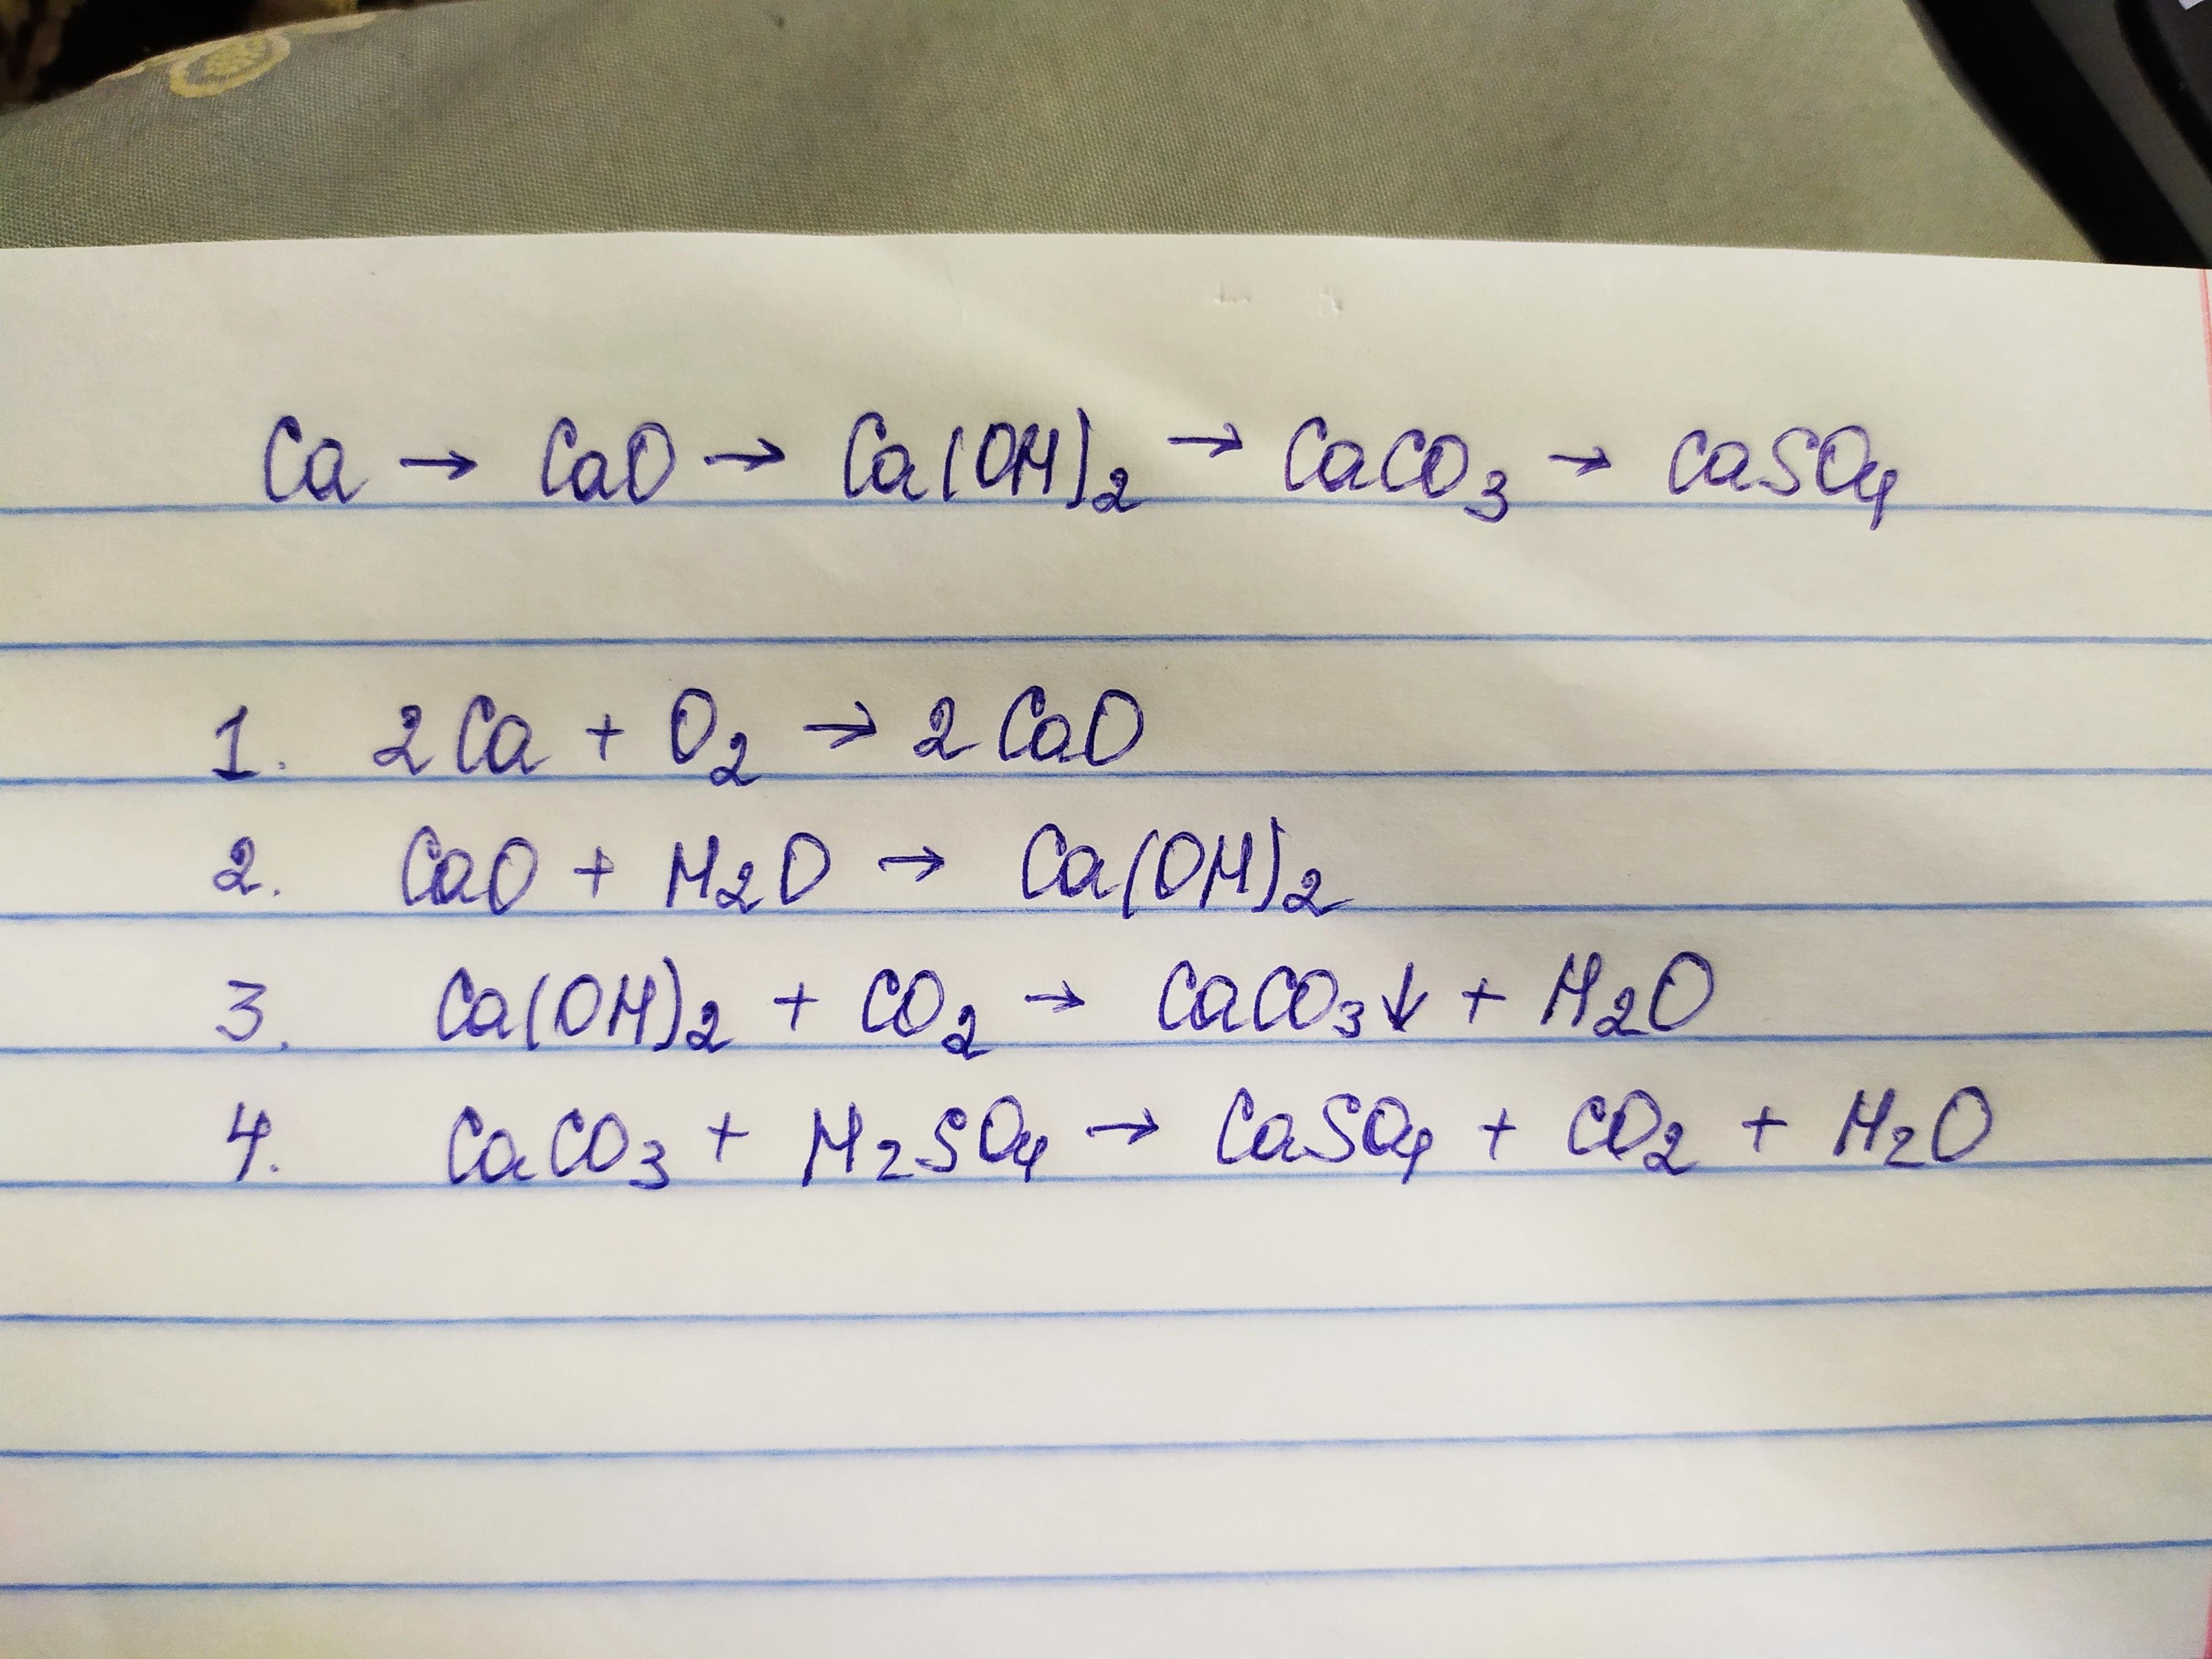 Ca → CaO → Ca(OH)₂ → CaCO₃ → CaSO₄
1. 2Ca + O₂ → 2CaO
2. CaO + H₂O → Ca(OH)₂
3. Ca(OH)₂ + CO₂ → CaCO₃↓ + H₂O
4. CaCO₃ + H₂SO₄ → CaSO₄ + CO₂ + H₂O